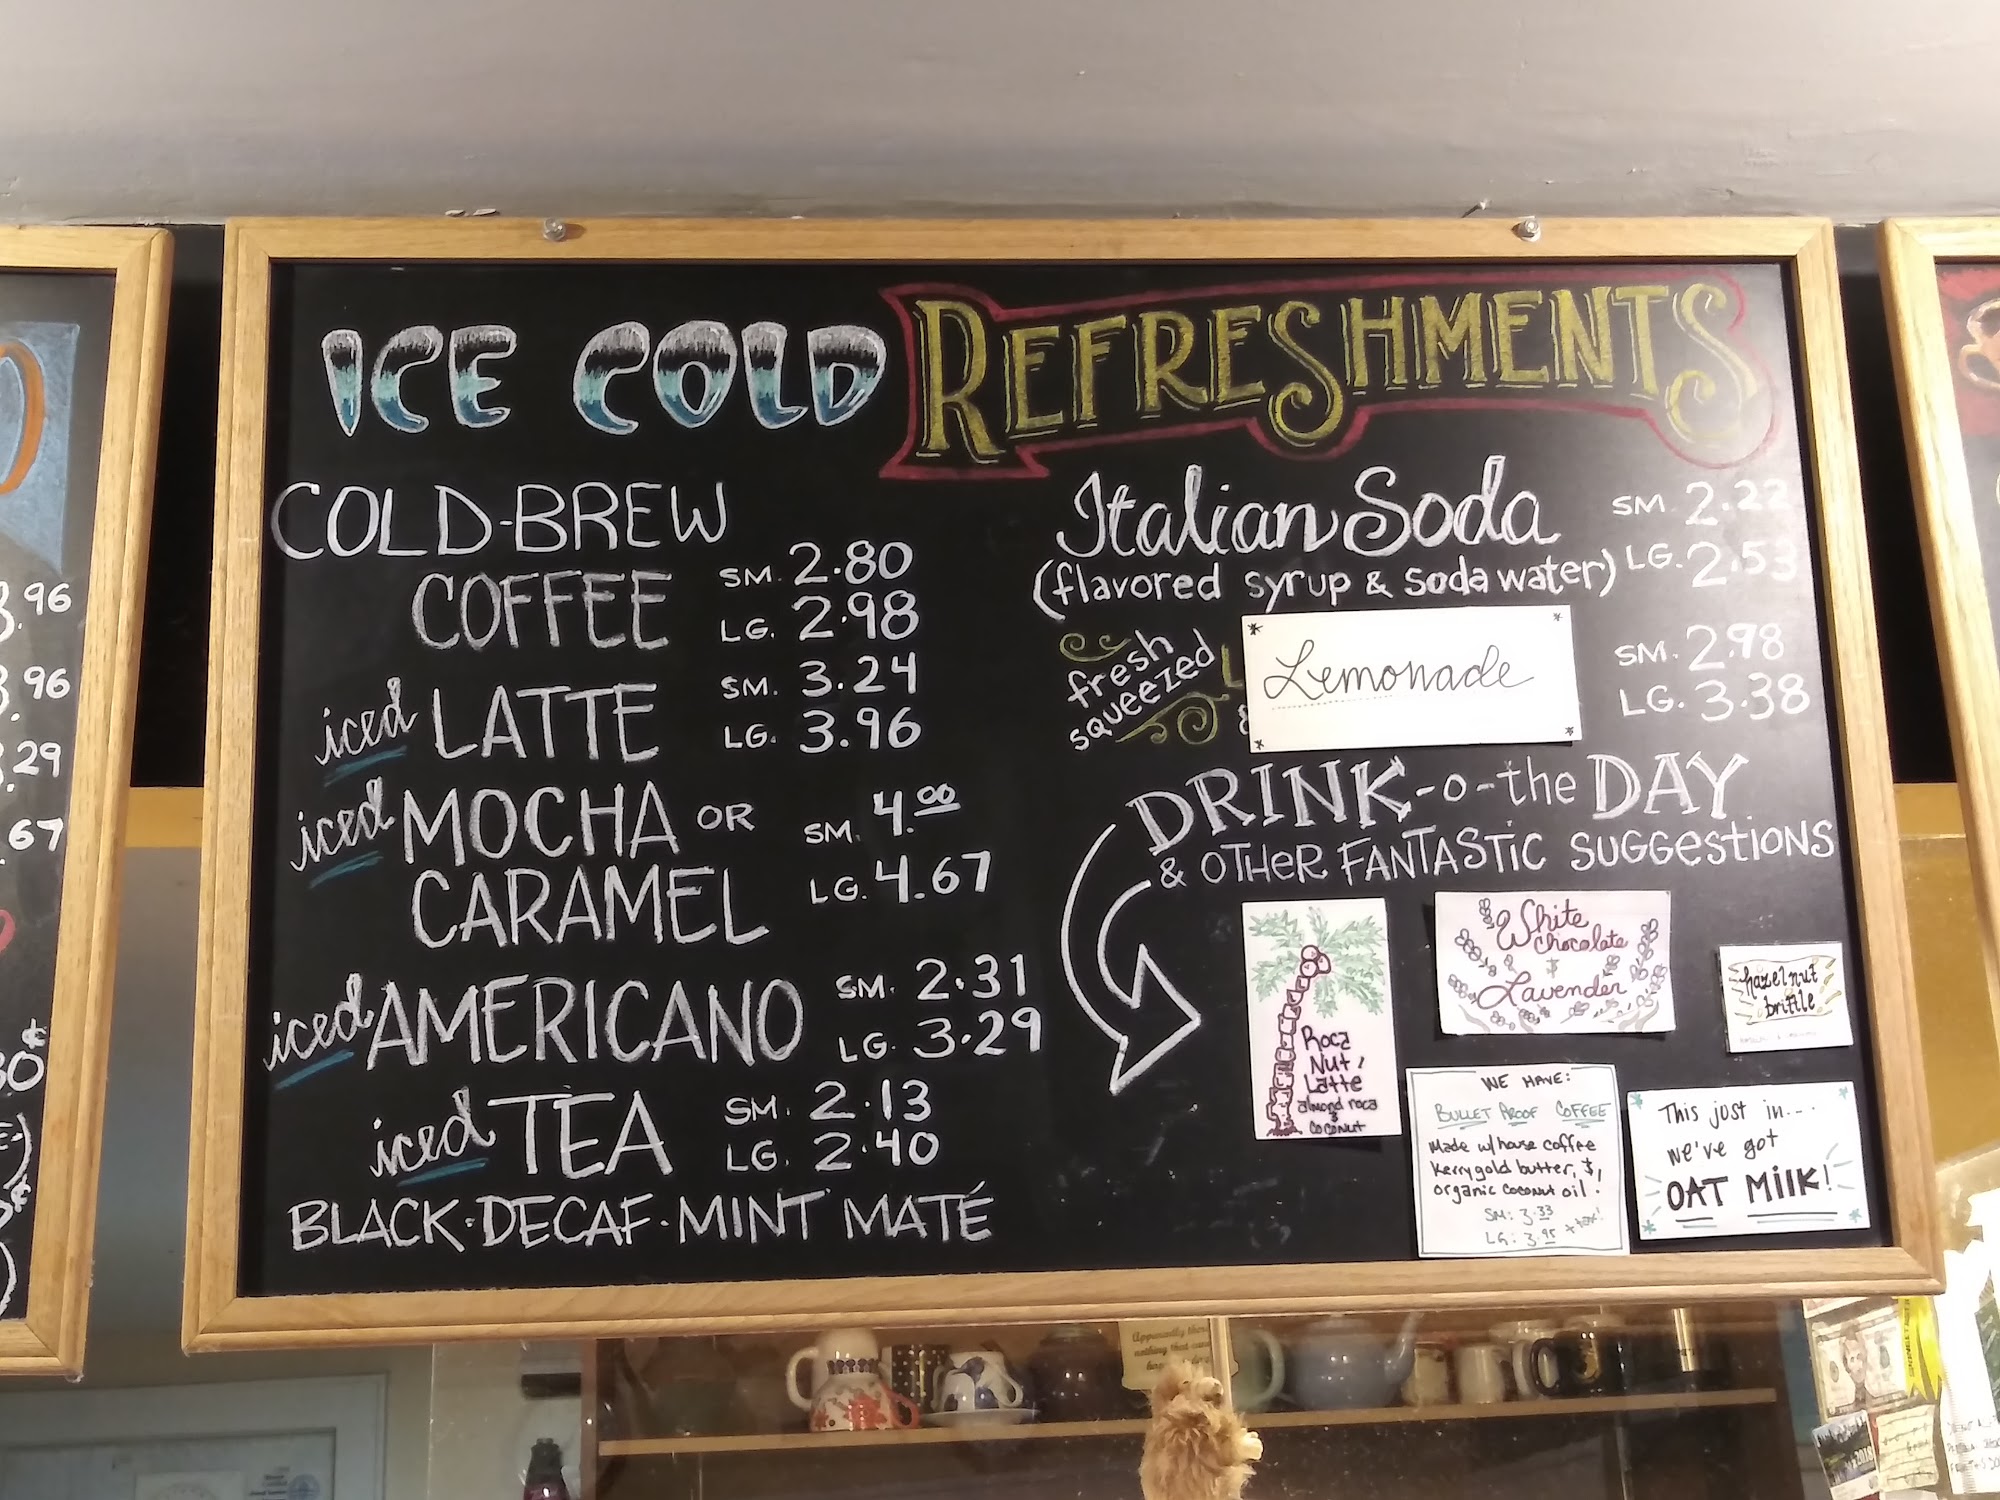 ICE COLD REFRESHMENTS
COLD-BREW
COFFEE SM. 2.80
LG. 2.98
iced LATTE SM. 3.24
LG. 3.96
iced MOCHA OR SM. 4.00
CARAMEL LG. 4.67
iced AMERICANO SM. 2.31
LG. 3.29
iced TEA SM. 2.13
LG. 2.40
BLACK·DECAF·MINT MATÉ
Italian Soda SM. 2.22
(flavored syrup & soda water) LG. 2.53
fresh
squeezed
Lemonade
SM. 2.98
LG. 3.38
DRINK-o-the DAY
& OTHER FANTASTIC SUGGESTIONS
Roca
Nut
Latte
almond roca
&
coconut
White
chocolate
&
Lavender
hazelnut
brittle
WE HAVE:
BULLET PROOF COFFEE
Made w/house coffee
Kerrygold butter, $,
organic coconut oil.
SM: 3.33
LG: 3.95 + tax!
This just in....
we've got
OAT MiLK!
.96
.96
.29
.67
Apparently there
nothing that
2018